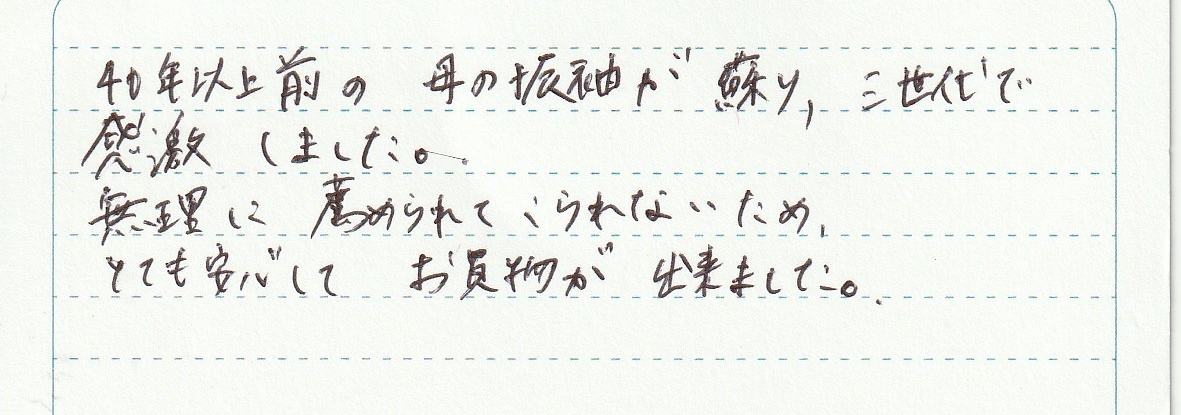 40年以上前の 母の振袖が 蘇り, 三世代で
感激 しました。
無理に 薦められて こられないため,
とても安心して お買物が 出来ました。